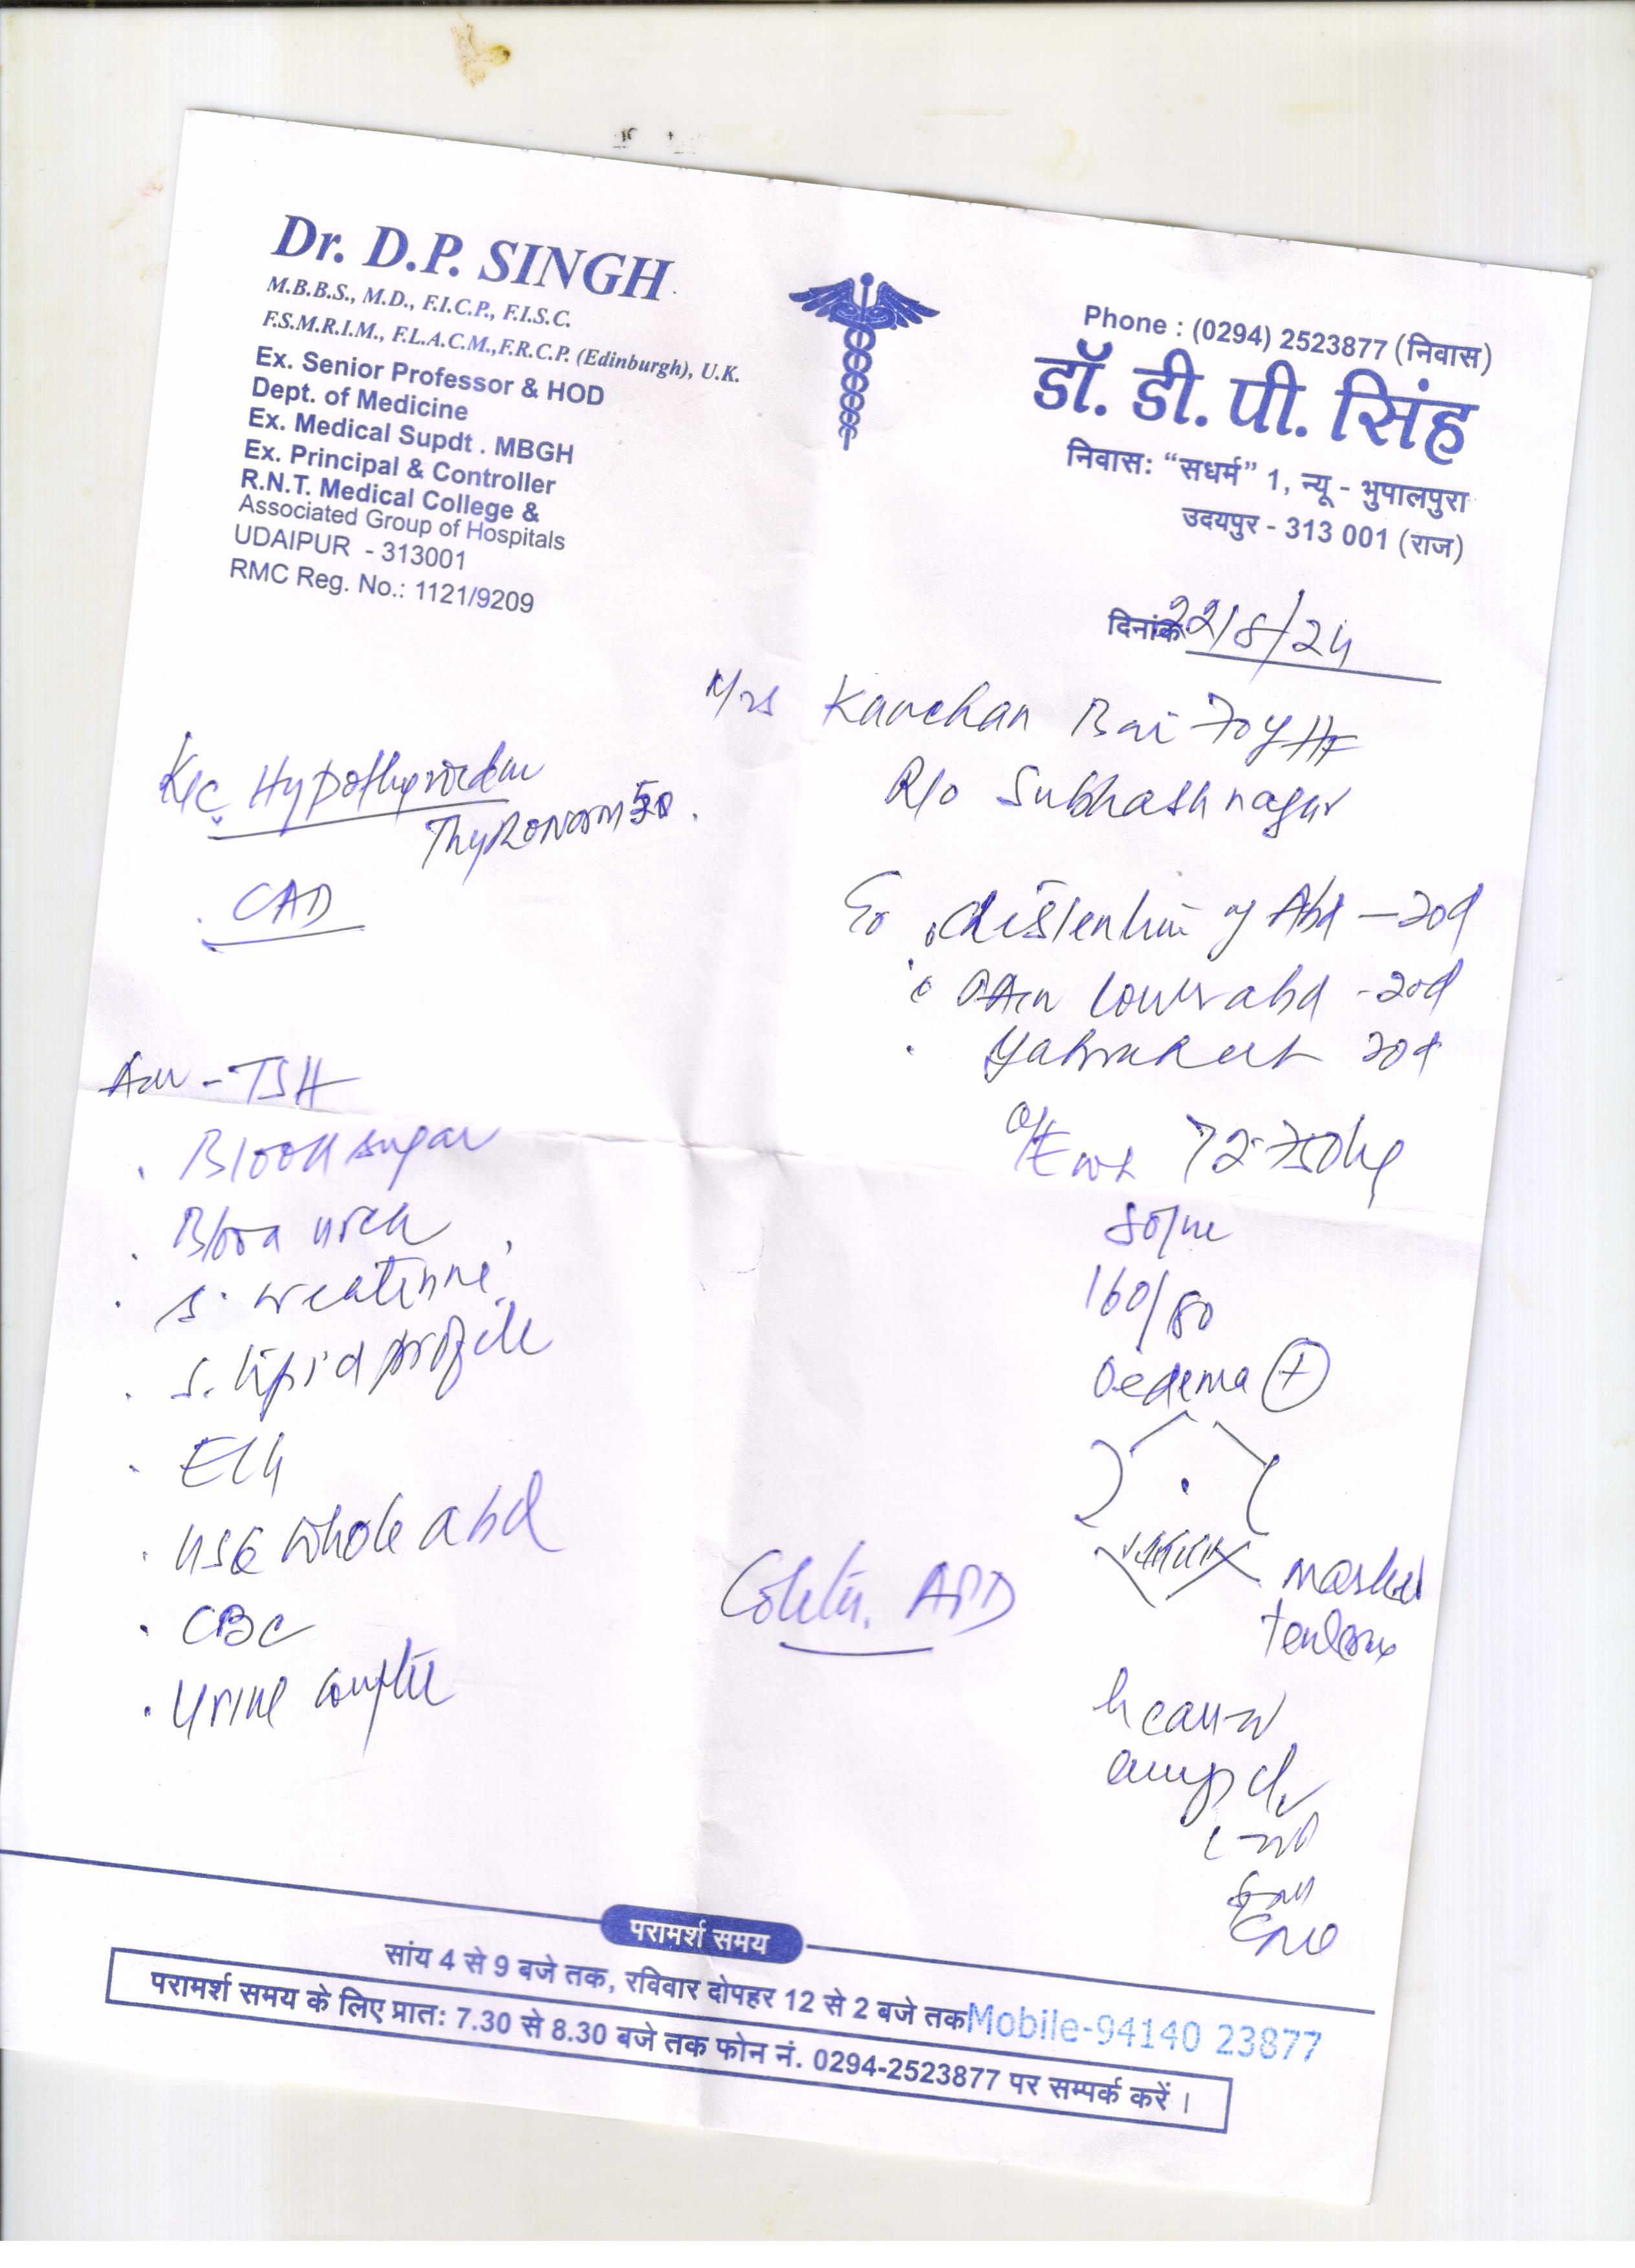 Dr. D.P. SINGH
M.B.B.S., M.D., F.I.C.P., F.I.S.C.
F.S.M.R.I.M., F.L.A.C.M.,F.R.C.P. (Edinburgh), U.K.
Ex. Senior Professor & HOD
Dept. of Medicine
Ex. Medical Supdt . MBGH
Ex. Principal & Controller
R.N.T. Medical College &
Associated Group of Hospitals
UDAIPUR - 313001
RMC Reg. No.: 1121/9209
Phone : (0294) 2523877 (निवास)
डॉ. डी. पी. सिंह
निवास: “सधर्म” 1, न्यू - भुपालपुरा
उदयपुर - 313 001 (राज)
दिनांक 22/8/24
Mrs Kanchan Bai 70y
R/o Subhash nagar
K/c Hypothyroidism
Thyronorm 50
CAD
distention of Abd - 20d
Pain lower abd - 20d
20d
O/E wt 72.750kg
80/m
160/80
Oedema +
marked
TSH
Blood sugar
Blood urea
S. creatinine
S. lipid profile
ECG
USG whole abd
CBC
Urine complete
APD
परामर्श समय
सांय 4 से 9 बजे तक, रविवार दोपहर 12 से 2 बजे तक Mobile-94140 23877
परामर्श समय के लिए प्रात: 7.30 से 8.30 बजे तक फोन नं. 0294-2523877 पर सम्पर्क करें ।